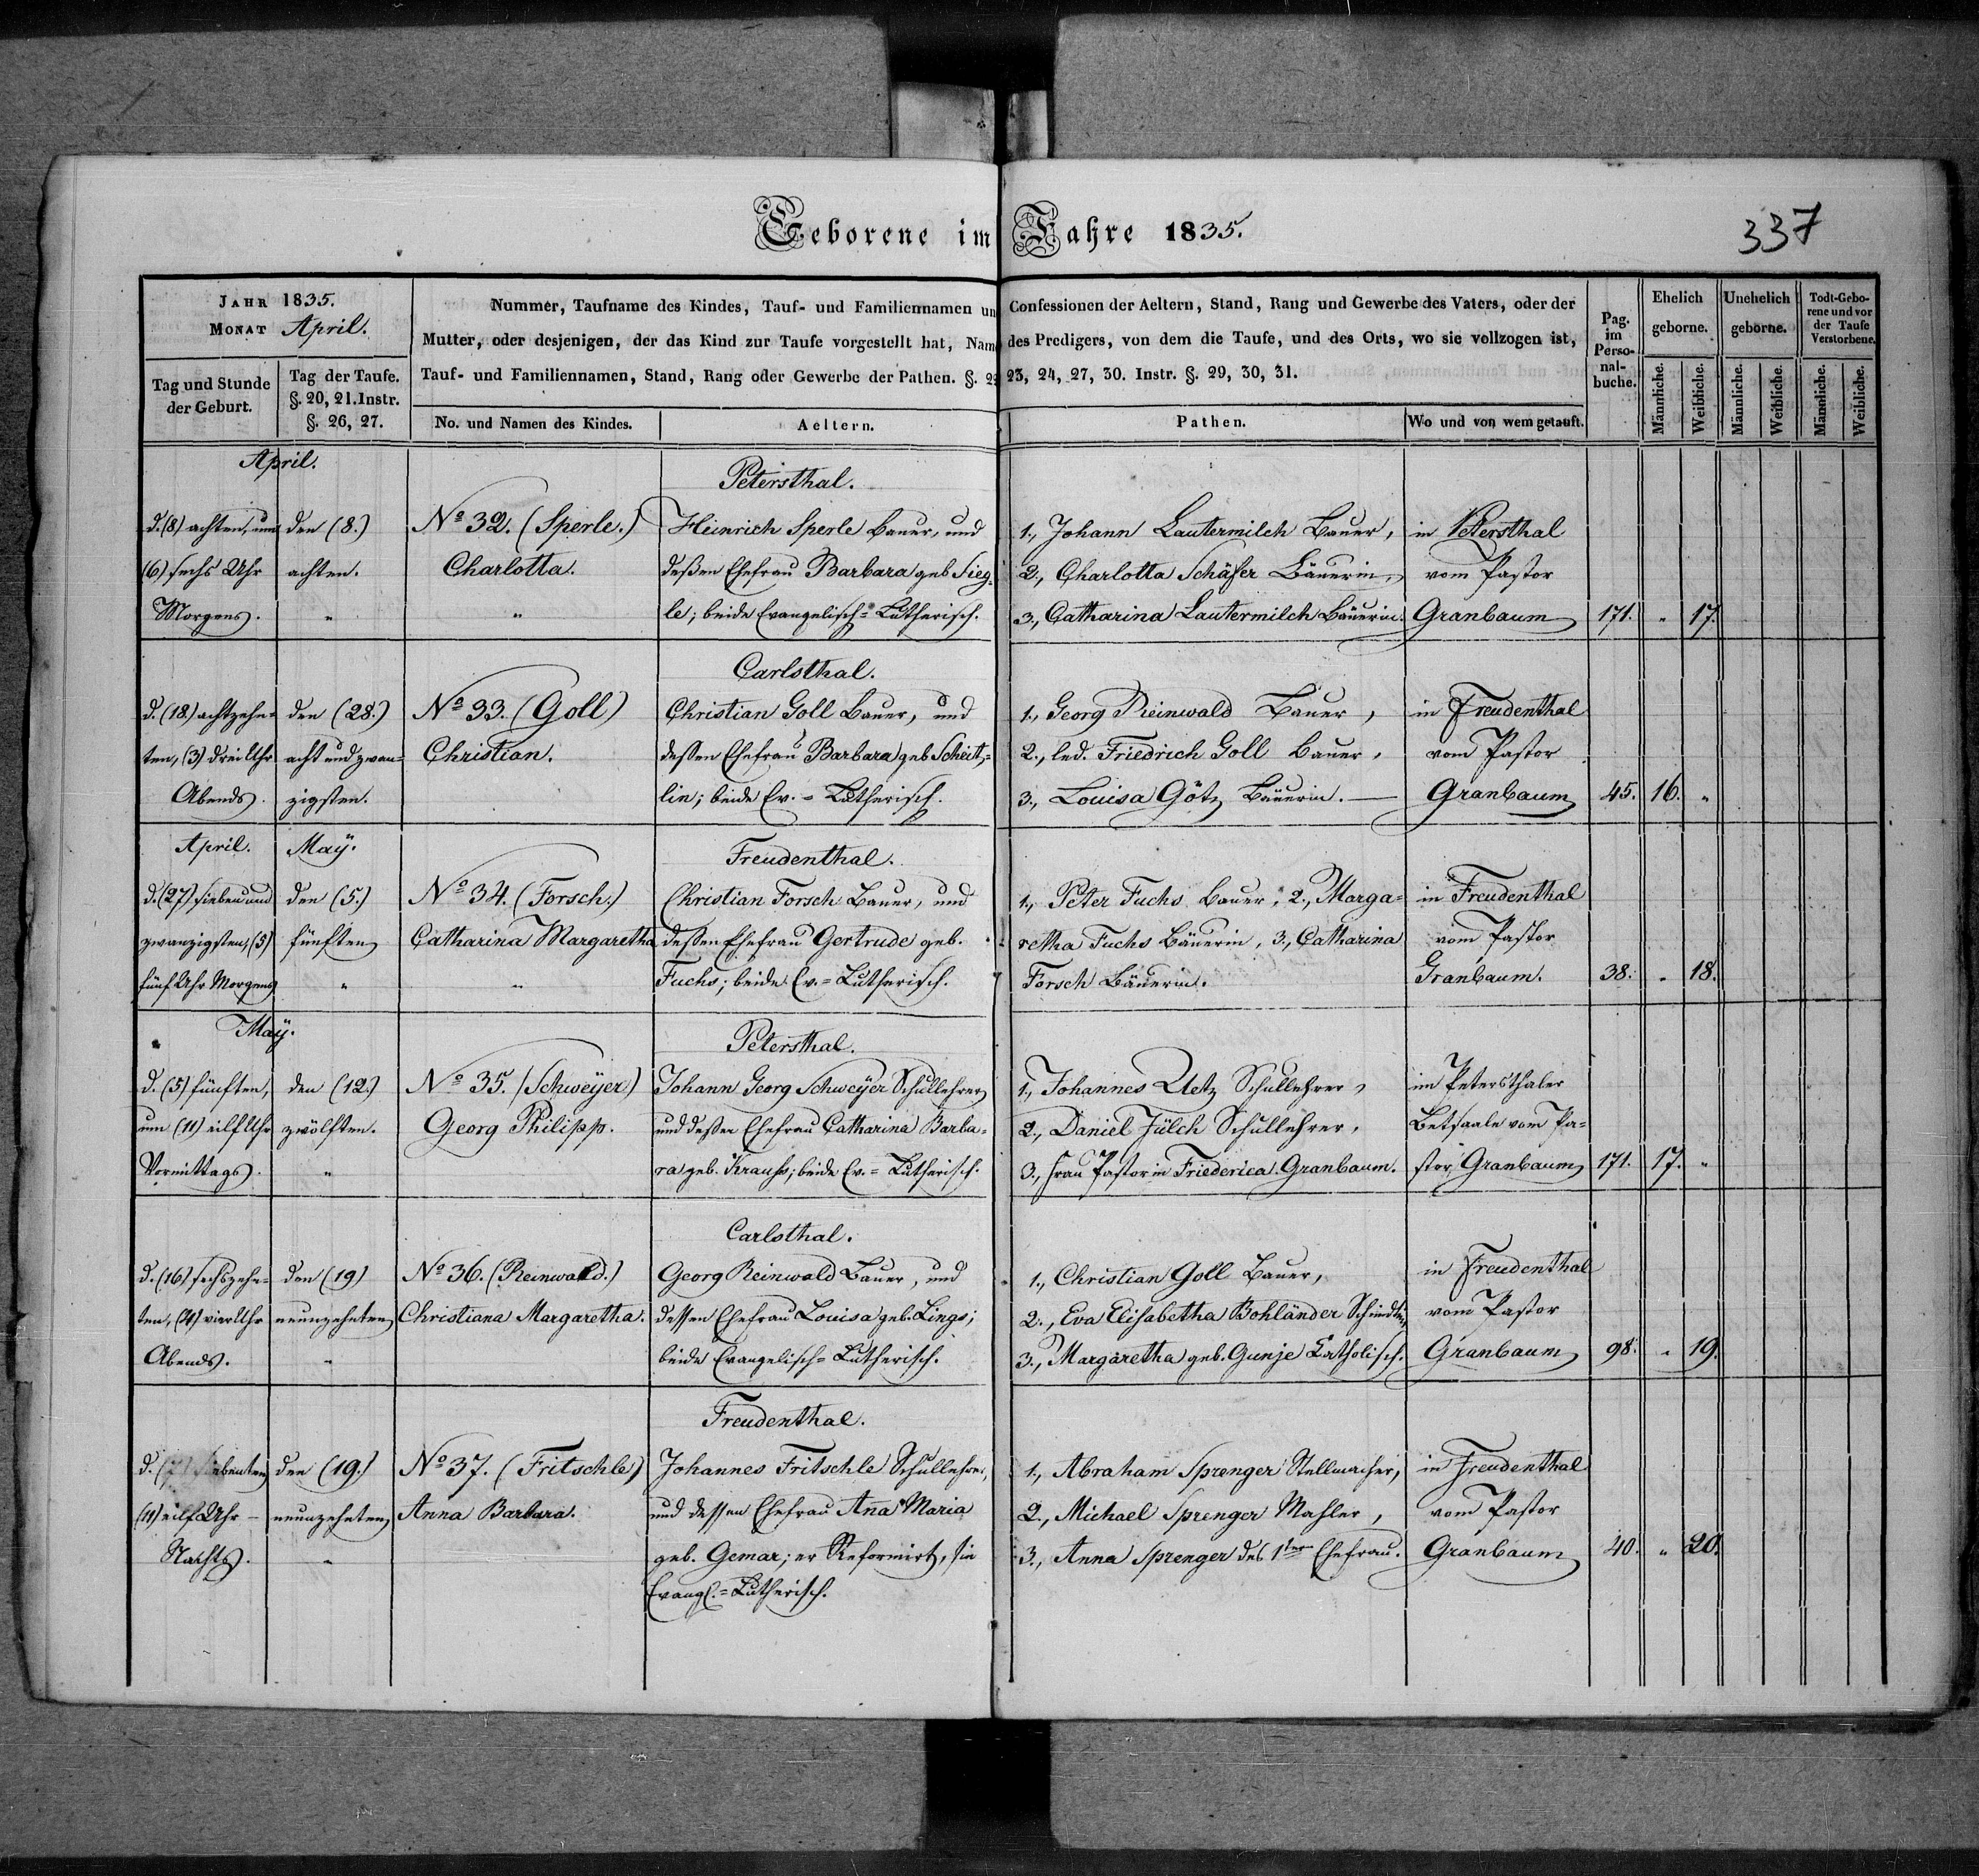 Geborene im Jahre 1835.
337
JAHR 1835.
MONAT April.
Nummer, Taufname des Kindes, Tauf- und Familiennamen un Confessionen der Aeltern, Stand, Rang und Gewerbe des Vaters, oder der
Mutter, oder desjenigen, der das Kind zur Taufe vorgestellt hat, Nam des Predigers, von dem die Taufe, und des Orts, wo sie vollzogen ist,
Tauf- und Familiennamen, Stand, Rang oder Gewerbe der Pathen. §. 23, 24, 27, 30. Instr. §. 29, 30, 31.
Tag und Stunde der Geburt.
Tag der Taufe. §. 20, 21. Instr. §. 26, 27.
No. und Namen des Kindes.
Aeltern.
Pathen.
Wo und von wem getauft.
Pag. im Perso-nal-buche.
Ehelich geborne.
Unehelich geborne.
Todt-Gebo-rene und vor der Taufe Verstorbene.
Männliche. Weibliche. Männliche. Weibliche. Männliche. Weibliche.
April.
Petersthal.
d. (8) achten, um den (8.) No 32. (Sperle.) Heinrich Sperle Bauer, und 1., Johann Lautermilch Bauer, in Petersthal
(6) sechs Uhr achten. Charlotta. deßen Ehefrau Barbara geb Sieg- 2., Charlotta Schäfer Bäuerin, vom Pastor
Morgens. " " le; beide Evangelisch-Lutherisch. 3., Catharina Lautermilch Bäuerin. Granbaum 171. " 17.
Carlsthal.
d. (18.) achtzehn- den (28.) No 33. (Goll) Christian Goll Bauer, und 1., Georg Reinwald Bauer, in Freudenthal
ten, (3) drei Uhr acht und zwan- Christian. dessen Ehefrau Barbara geb Scheit- 2., led. Friedrich Goll Bauer, vom Pastor
Abends. zigsten. lin; beide Ev.-Lutherisch. 3., Louisa Götz Bäuerin. — Granbaum 45. 16. "
April. Maÿ.
Freudenthal.
d. (27) sieben und den (5.) No 34. (Forsch.) Christian Forsch Bauer, und 1., Peter Fuchs Bauer, 2., Marga- in Freudenthal
zwanzigsten, (5) fünften Catharina Margaretha dessen Ehefrau Gertrude geb. retha Fuchs Bäuerin, 3., Catharina vom Pastor
fünf Uhr Morgens " " Fuchs; beide Ev.-Lutherisch. Forsch Bäuerin. Granbaum. 38. " 18.
Maÿ.
Petersthal.
d. (5) fünften, den (12.) No 35. (Schweÿer) Johann Georg Schweÿer Schullehrer 1., Johannes Uetz Schullehrer, im Petersthaler
um (11) eilf Uhr zwölften. Georg Philipp. und deßen Ehefrau Catharina Barba- 2., Daniel Jülch Schullehrer, Betsaale vom Pa-
Vormittags. " ra geb. Krauhs; beide Ev.-Lutherisch. 3., Frau Pastorin Friederica Granbaum. stor Granbaum 171. 17. "
Carlsthal.
d. (16) sechszehn- den (19) No 36. (Reinwald.) Georg Reinwald Bauer, und 1., Christian Goll Bauer, in Freudenthal
ten, (4) vier Uhr neunzehnten Christiana Margaretha. dessen Ehefrau Louisa geb. Lings; 2., Eva Elisabetha Bohländer vom Pastor
Abends. " beide Evangelisch-Lutherisch. 3., Margaretha geb. Gunje Katholisch. Granbaum 98. " 19.
Freudenthal.
d. (7) siebenten den (19.) No 37. (Fritschle) Johannes Fritschle Schullehrer, 1., Abraham Sprenger Stellmacher, in Freudenthal
(11) eilf Uhr – neunzehnten Anna Barbara. und dessen Ehefrau Ana Maria 2., Michael Sprenger Mahler, vom Pastor
Nachts. " geb. Gemar; er Reformirt, sie 3., Anna Sprenger des 1ten Ehefrau. Granbaum 40. " 20.
Evangl.-Lutherisch.